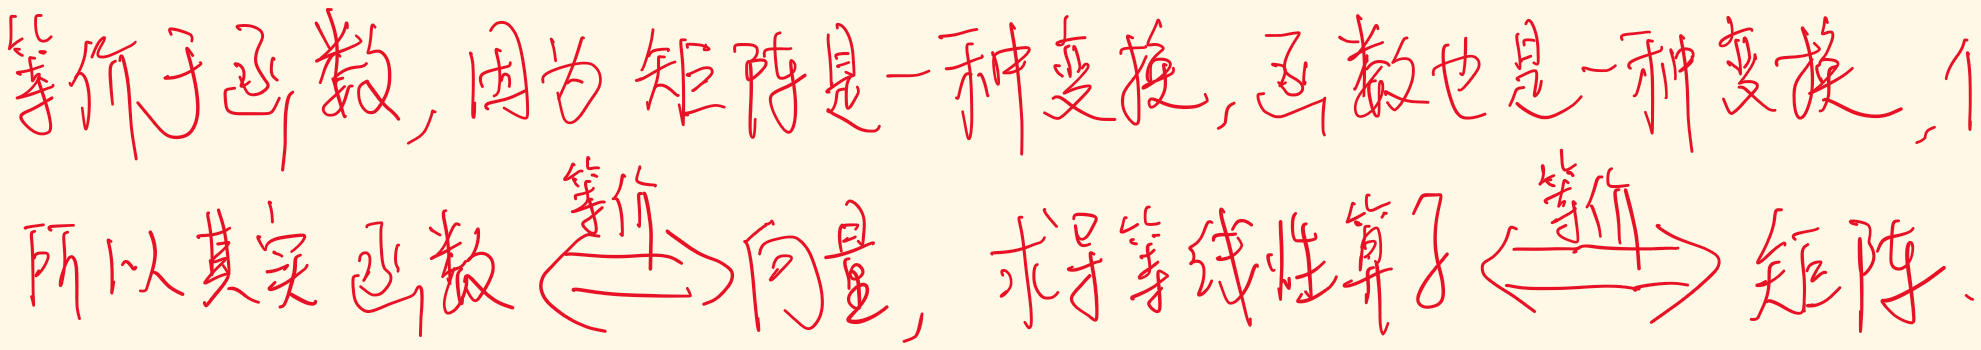 等价于函数,因为矩阵是一种变换,函数也是一种变换,
所以其实函数 等价 向量, 求导等线性算子 等价 矩阵.